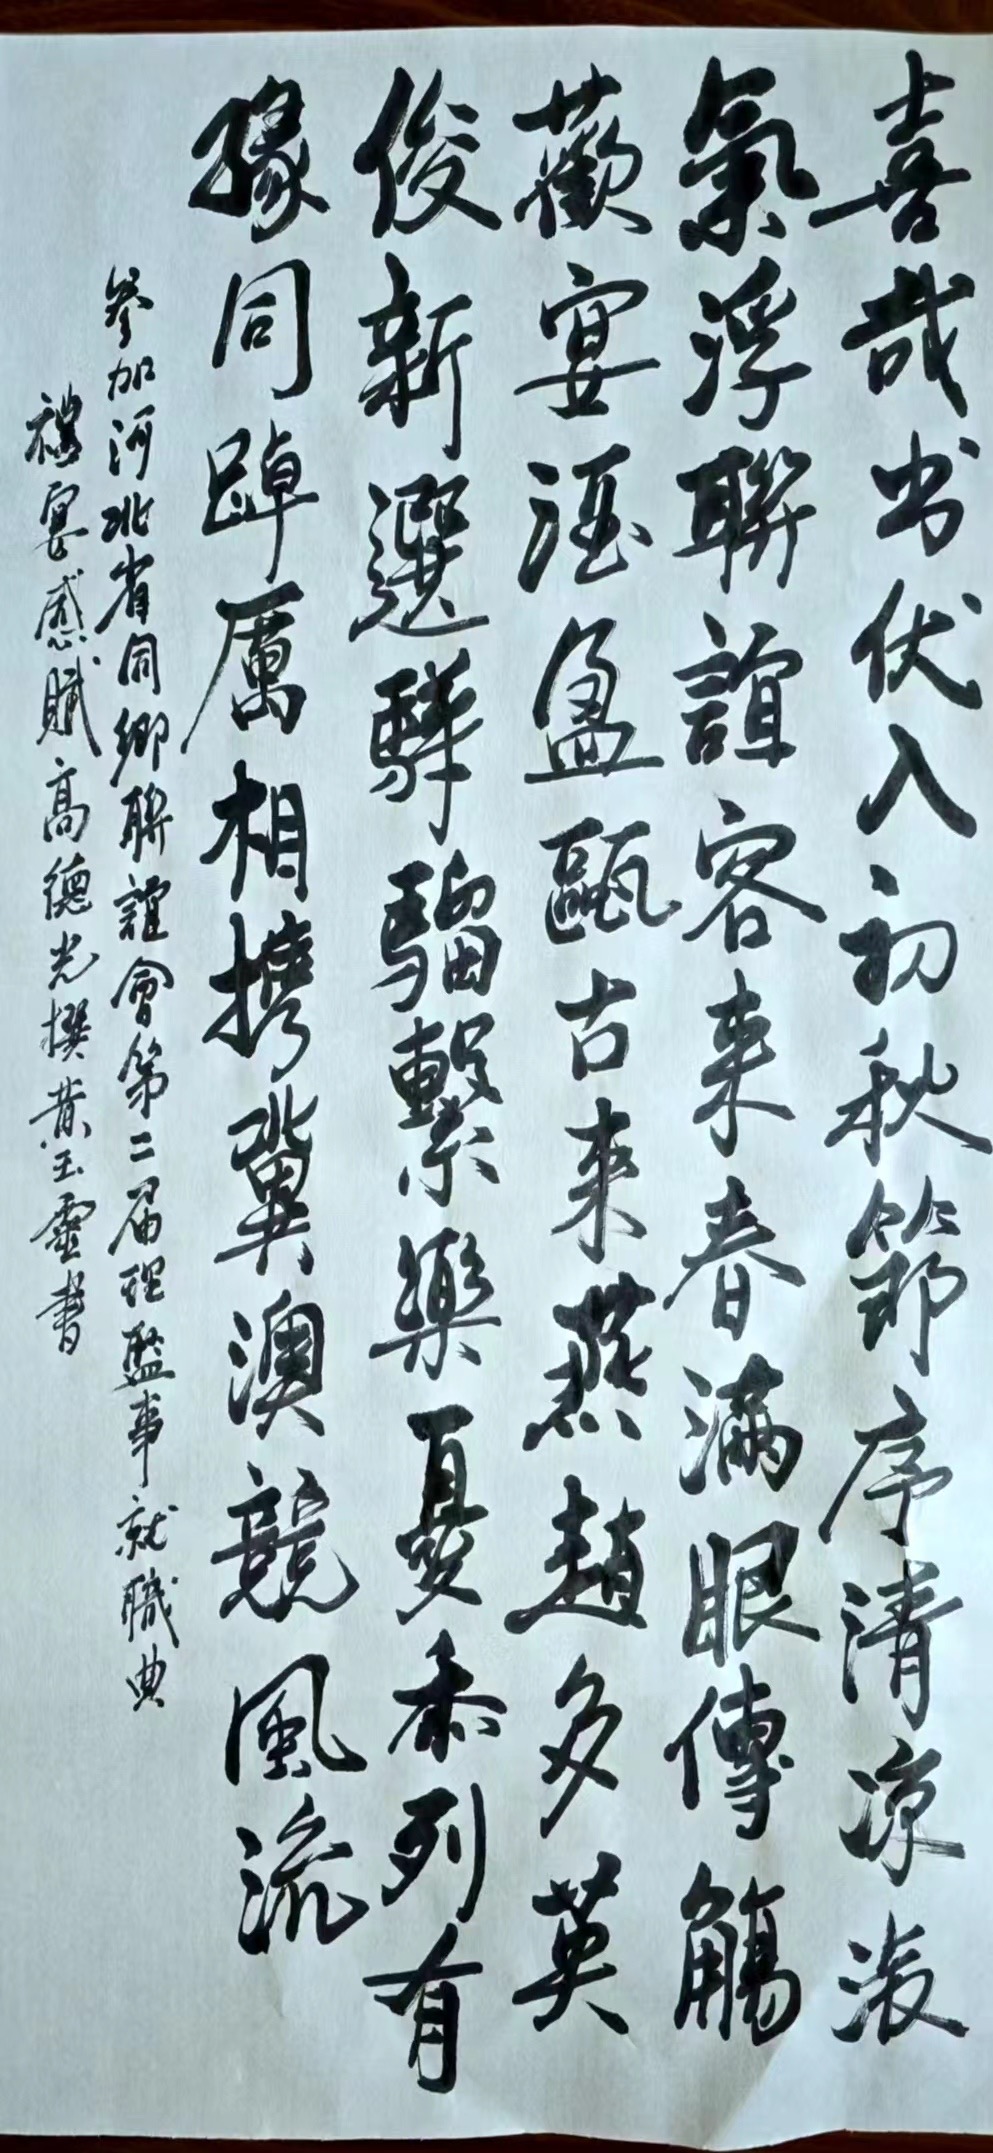 喜哉出伏入初秋節序清涼淑
氣浮聯誼客來春滿眼傳觴
歡宴酒盈甌古來燕趙多英
俊新選驊騮繫樂憂忝列有
緣同踔厲相攜冀澳競風流
參加河北省同鄉聯誼會第二届理監事就職典
禮宴感賦高德光撰黄玉靈書